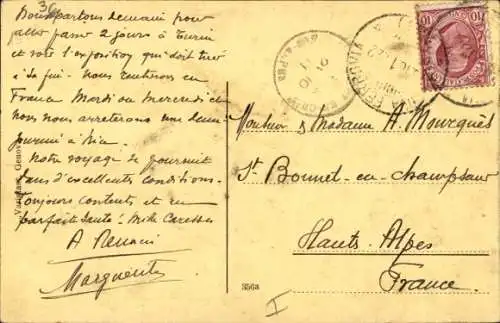 Nous partons demain pour
aller passer 2 jours à Turin
et voir l'exposition qui doit être
si jolie. Nous rentrerons en
France Mardi ou Mercredi et
nous nous arreterons une demi
journée à Nice.
Notre voyage se poursuit
dans d'excellentes conditions.
Toujours contents et en
parfaite santé! Mille Caresses
A
Marguerite
Monsieur & Madame A. Mourguès
St Bonnet-en-champsaur
Hautes-Alpes
France
356a
I
10
10